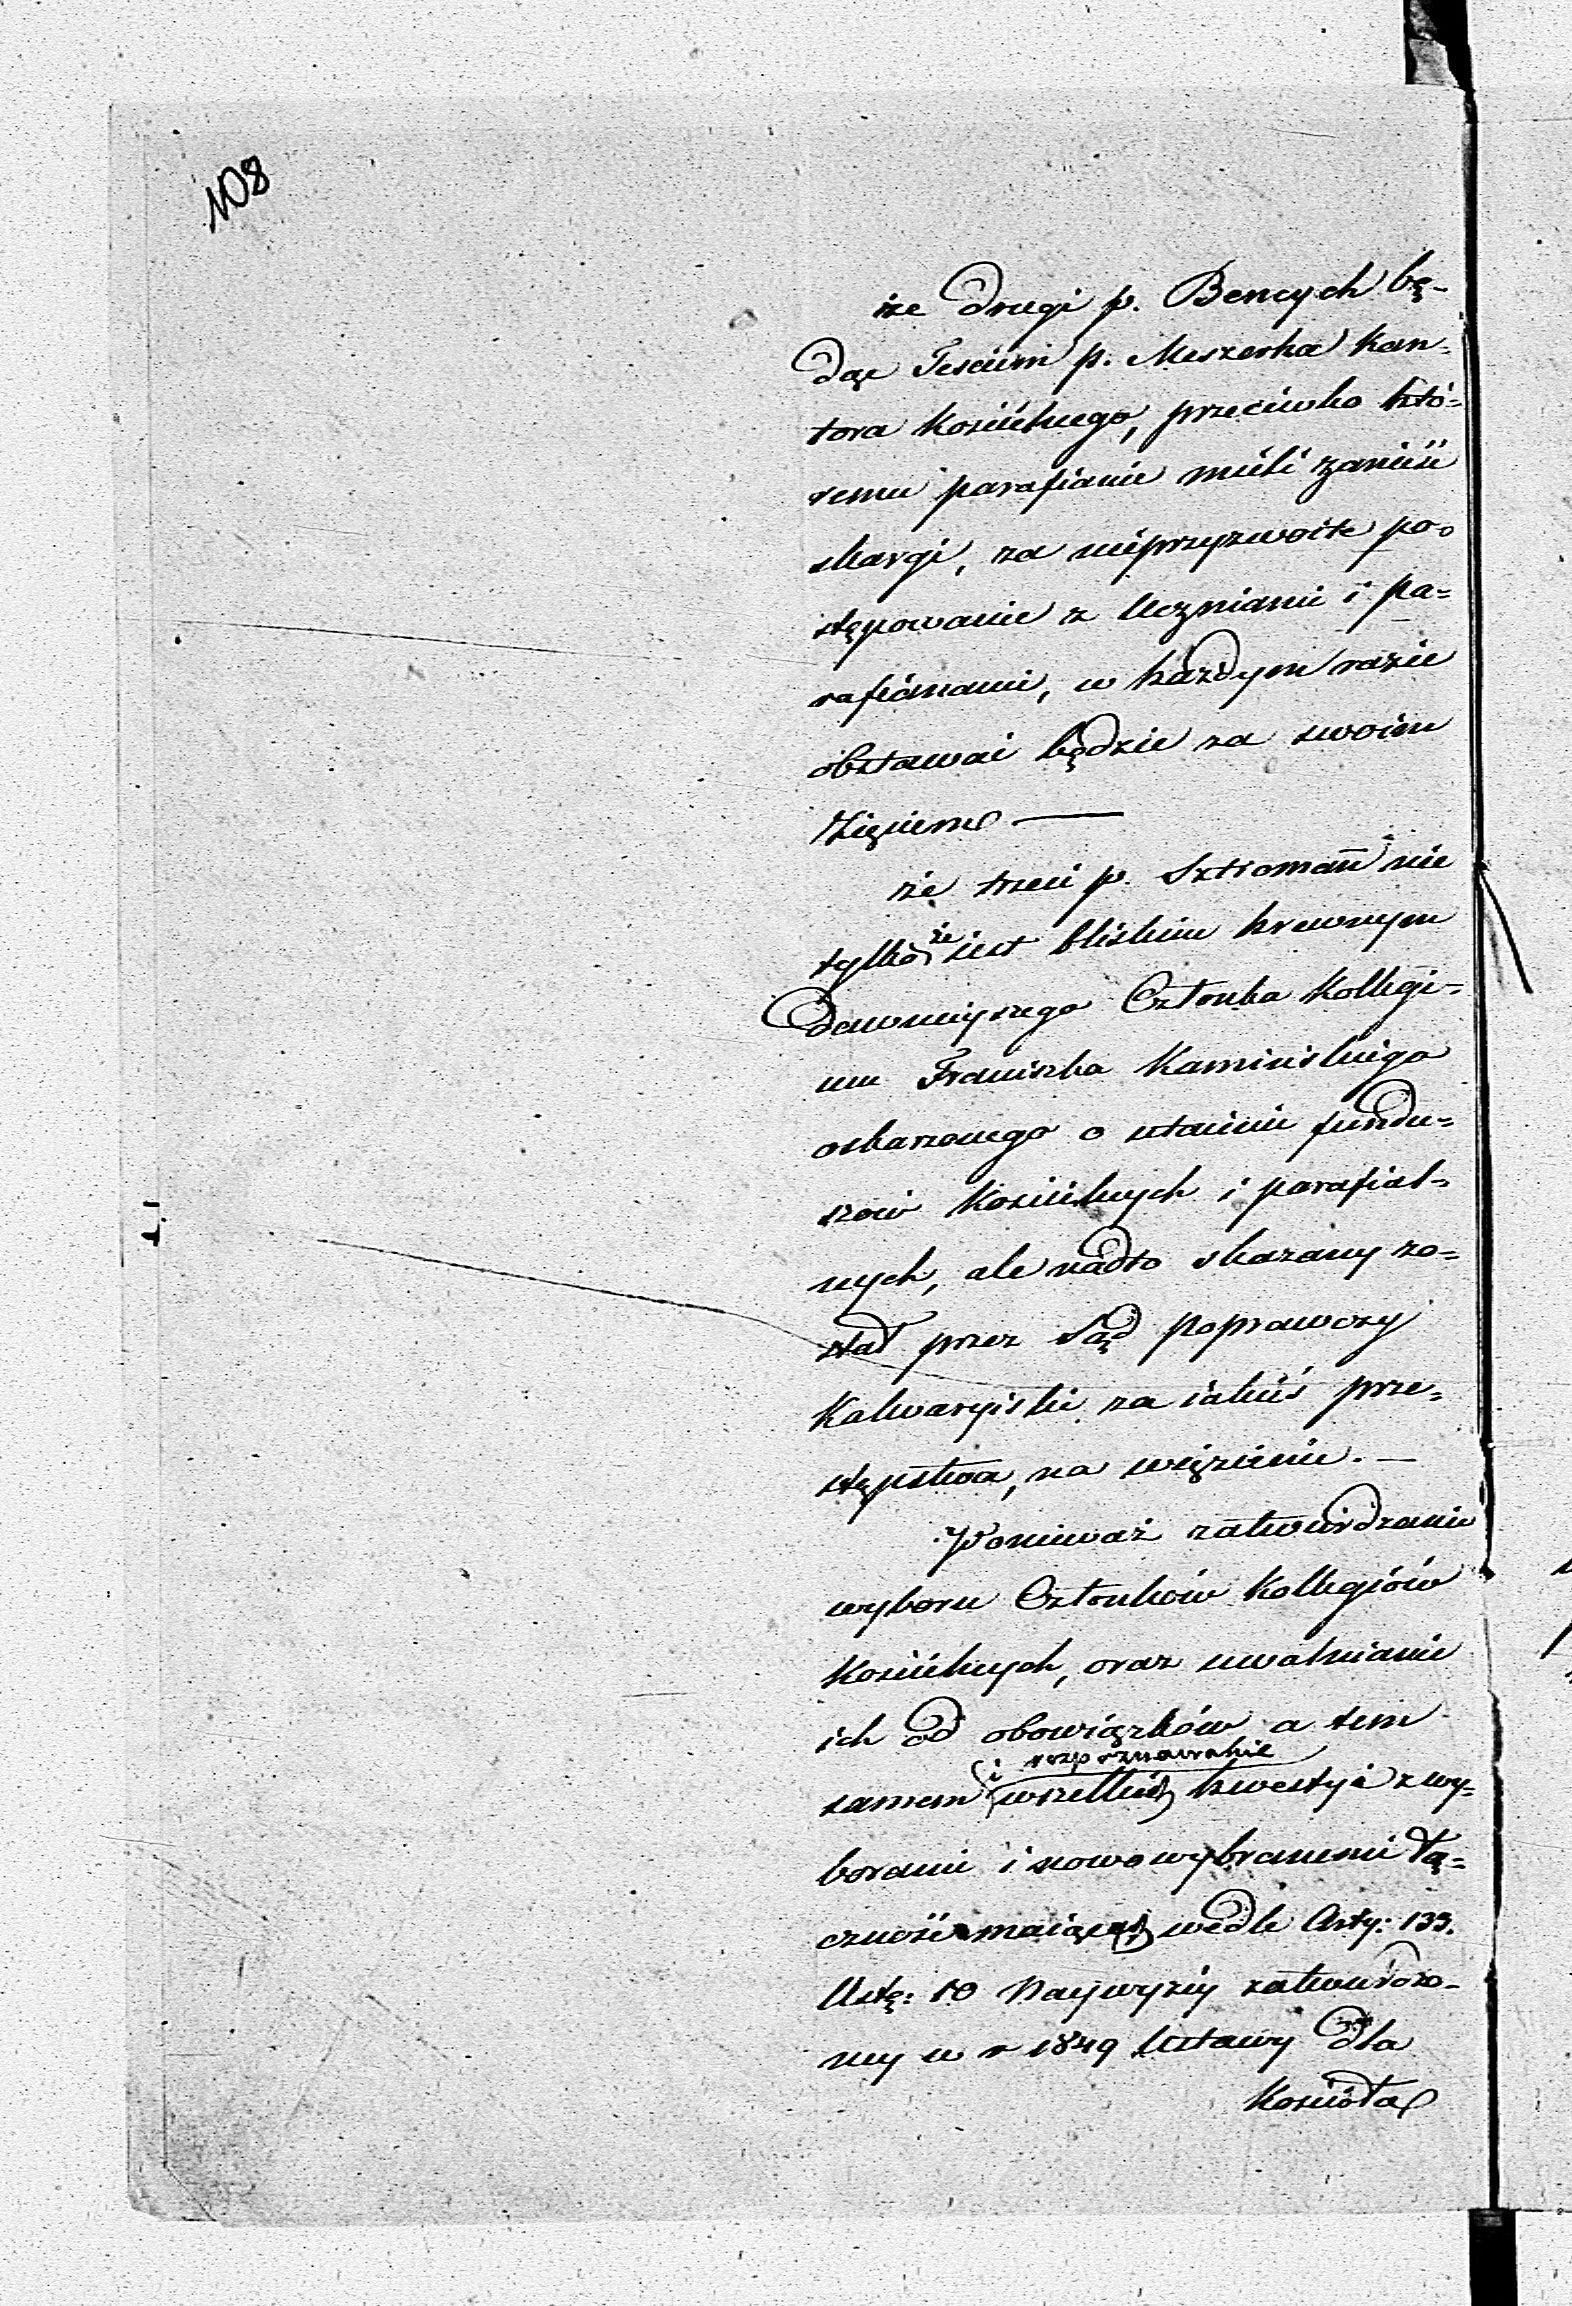 108
że drugi p. Bencych bę-
dąc Teściem p. Meszerka Kan-
tora kościelnego, przeciwko któ-
remu parafianie mieli zanieść
skargi, za nieprzyzwoite po-
stępowanie z Uczniami i pa-
rafianami, w każdym razie
obstawać będzie za swoim
Zięciem —
że trzeci p. Sztromann nie
tylko że iest bliskim krewnym
dawnieyszego Członka Kollegi-
um Franciszka Kamińskiego
oskarzonego o utaienie fundu-
szów Kościelnych i parafial-
nych, ale nadto skazany zo-
stał przez Sąd poprawczy
Kalwaryiski za iakieś prze-
stępstwa, na więzienie. —
Ponieważ zatwierdzanie
wyboru Członków Kollegiów
Kościelnych, oraz uwalnianie
ich od obowiązków a tem
i rozpoznawanie
samem wszelkich kwestyi z wy-
borami i nowowybranemi łą-
czność maiących wedle Arty: 135.
Ustę: 10 Naywyżey zatwierdzo-
ney w r 1849 Ustawy dla
Kościoła